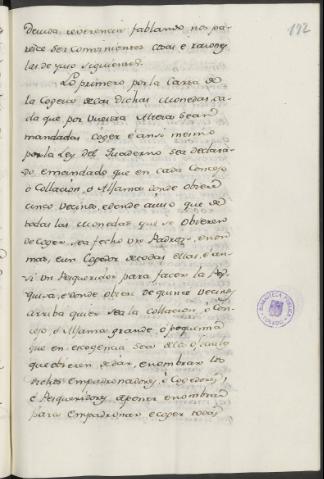 192
devida reverencia fablando, nos pa-
rece ser convinientes cosas e razones
las de yuso siguientes.
Lo primero por la Carta de
la Cogecha de las dichas monedas ca-
da que por Vuestra Alteza sean
mandadas coger e ansi mesmo
por la Ley del Quaderno sea declara-
do, e mandado que en cada Concejo
o Collacion, o Aljama donde obiere
cinco Vecinos, e donde ayuso que de
todas las monedas que se obieren
de coger, sea fecho un Padron, e non
mas, e un Cogedor de todas ellas, e an-
si un Pesqueridor para facer la Pes-
quisa, e donde obiere de quince Vecinos
arriba quier sea la collacion, o Con-
cejo, o Aljama grande, o pequeña
que en
que obieren de dar, e nombrar los
dichos Empadronadores, e Cogedores,
e Pesqueridores de poner e nombrar
para empadronar e coger todas